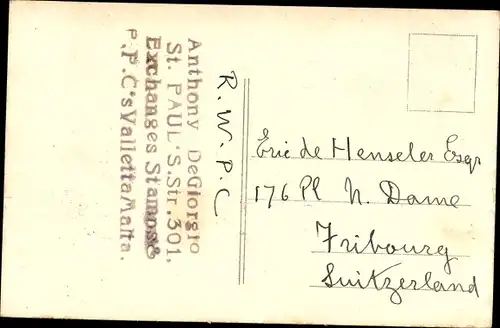 Anthony DeGiorgio
St. PAUL'S.Str.301,
Exchanges Stamps&
P.P.C's Valletta Malta.
R.W.P.C
Eric de Henseler Esqr
176 Pl N. Dame
Fribourg
Suitzerland